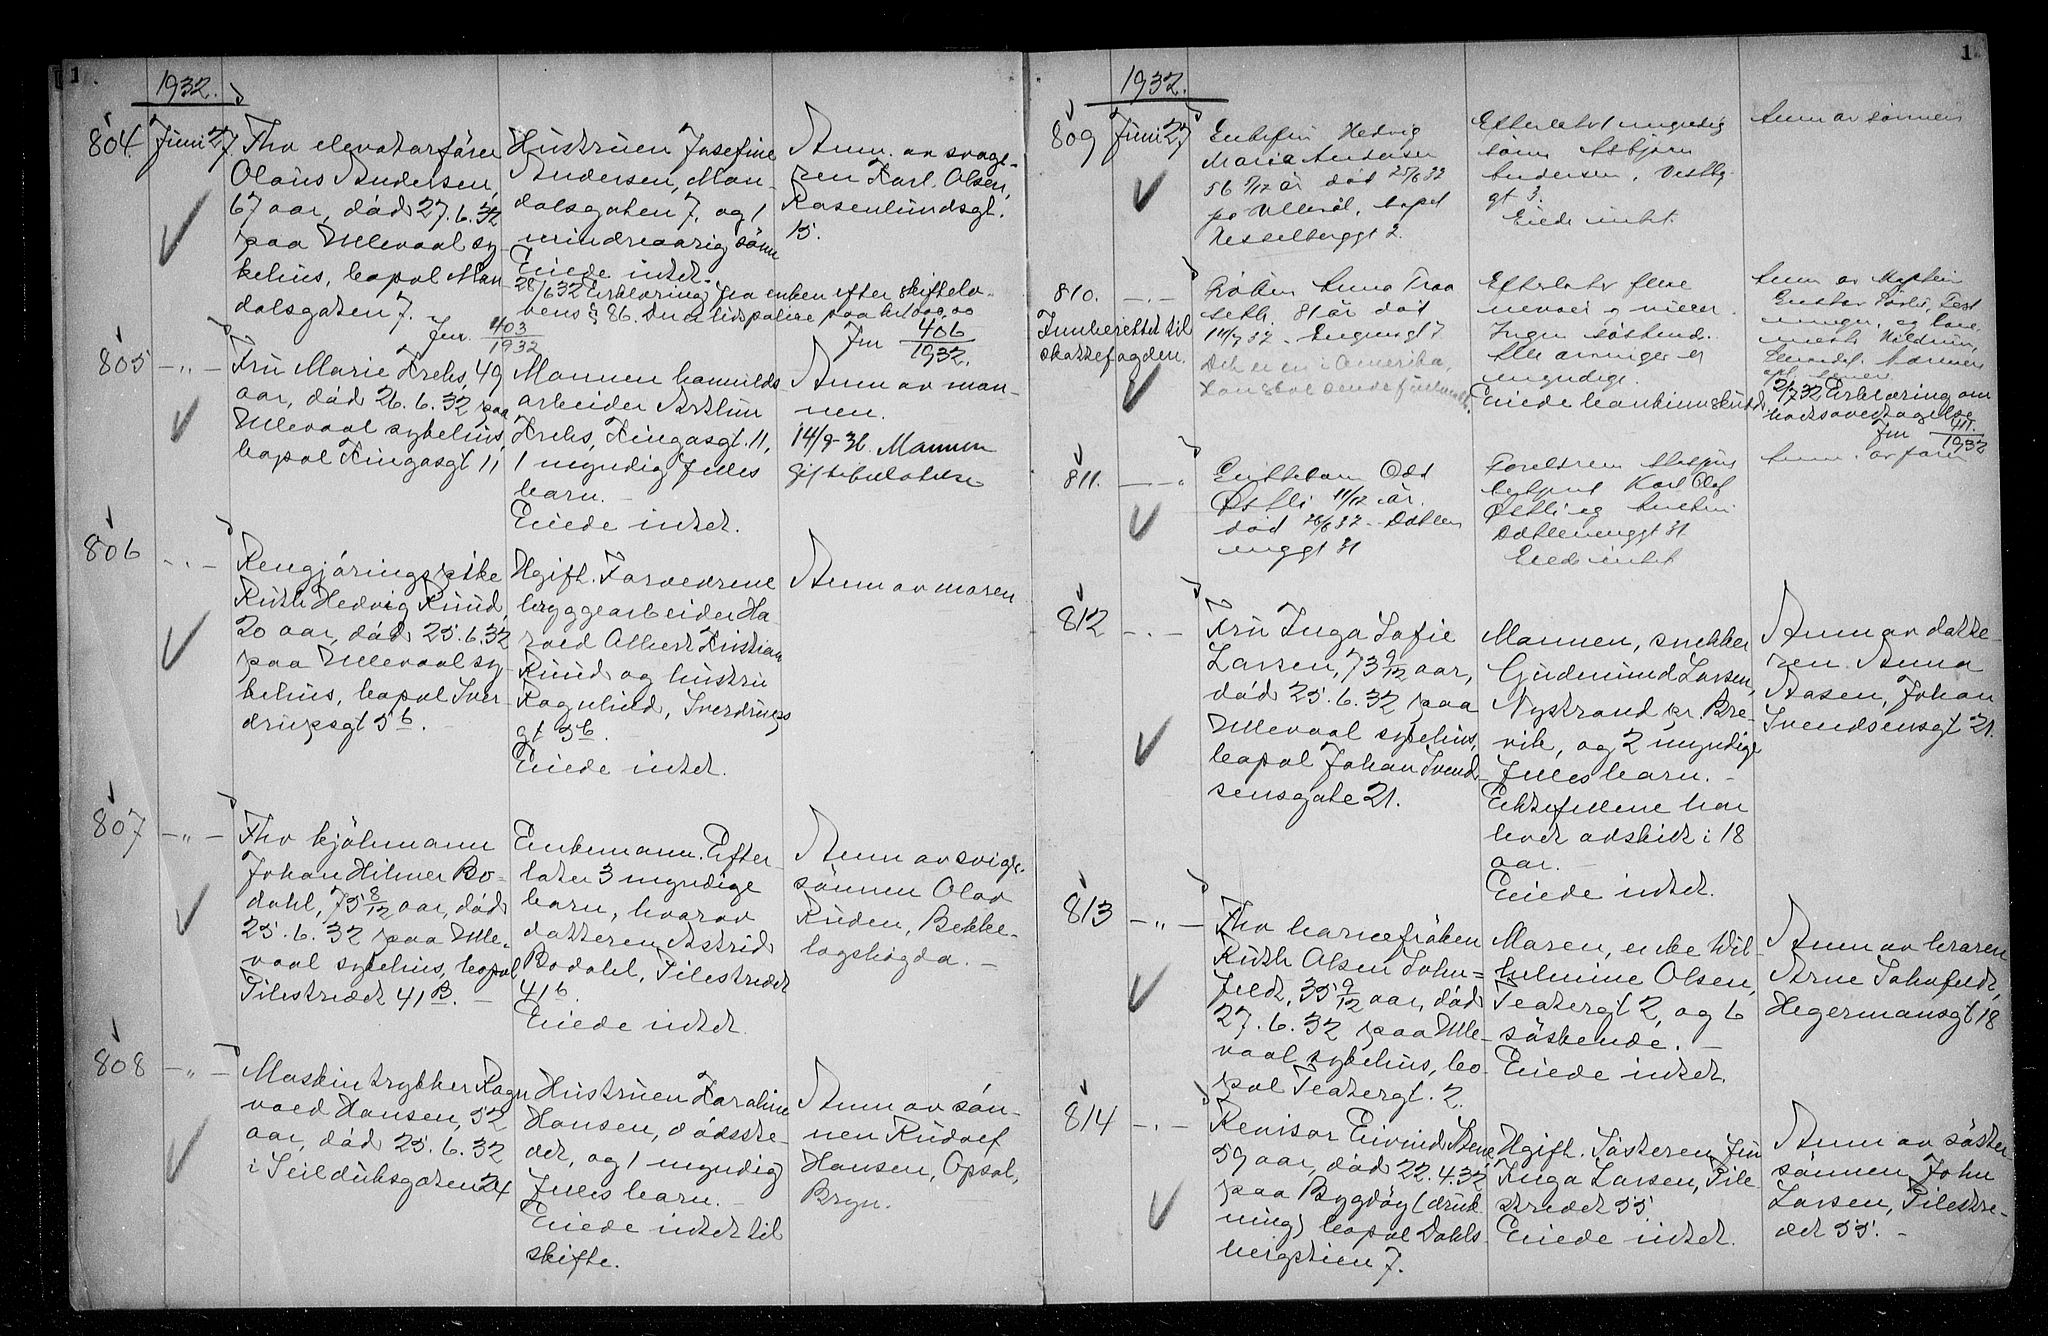 1
1932.
804.
Juni 27.
Fhv elevatorfører
Olaus Andersen,
67 aar, død 27.6.32
paa Ullevaal sy-
kehus, bopæl Man
dalsgaten 7.
Hustruen Josefine
Andersen, Man-
dalsgaten 7, og 1
mindreaarig sønn
Eiede intet.
28/6 32 Erklæring fra enken efter skiftelo-
vens § 86.
Jnr. 403/1932
Jnr 406/1932.
Anm. av svoge-
ren Karl Olsen,
Rosenlundsgt.
15.
805
- " -
Fru Marie Krehs, 49
aar, død 26.6.32 paa
Ullevaal sykehus,
bopæl Kingosgt 11
Mannen
arbeider Arthur
Krehs, Kingosgt. 11,
1 myndig fælles
barn. -
Eiede intet.
Anm av man-
nen.
14/9-36. Mannen
806
- " -
Rengjøringspike
Ruth Hedvig Ruud,
20 aar, død 25.6.32
paa Ullevaal sy-
kehus, bopæl Sver
drupsgt 5b. -
Ugift. Forældrene
bryggearbeider Ha-
rald Albert Kristian
Ruud og hustru
Ragnhild, Sverdrups
gt 5b. -
Eiede intet.
Anm av moren
807
- " -
Fhv kjøbmann
Johan Hilmer Bo-
dahl, 75 8/12 aar, død
25.6.32 paa Ulle-
vaal sykehus, bopæl
Pilestrædet 41 B. -
Enkemann. Efter
later 3 myndige
barn, hvorav
datteren Astrid
Bodahl, Pilestrædet
41b.
Eiede intet.
Anm av sviger-
sønnen Olav
Ruden, Bekke-
lagshøgda. -
808
- " -
Maskintrykker Ragn
vald Hansen, 52
aar, død 25.6.32
i Seilduksgaten 24
Hustruen Karoline
Hansen, dødsste-
det, og 1 myndig
fælles barn. -
Eiede intet til
skifte.
Anm av søn-
nen Rudolf
Hansen, Opsal,
Bryn.
1
1932.
809
Juni 27
Enkefru Hedvig
Maria Andersen
56 5/12 år død 25/6 32
på Ullevål, bopel
Hesselberggt 2.
Efterlatt 1 myndig
sønn Asbjørn
Andersen, Vestby-
gt 3.
Eiede intet.
Anm av sønnen
810.
- " -
Innberettet til
skattefogden.
Frøken Anna Traa
seth, 81 år død
Efterlater flere
nevøer og niecer.
Ingen søskend.
Alle arvinger er
myndige.
Eiede kun
Anm av
Gustav
2/7 32 Erklæring om
bodsovertagelse
Jnr 411/1932
811.
- " -
Guttebarn Odd
Østli 11/12 år.
død 26/6 32 - Dælen
enggt 31
Foreldrene
betjent Karl Olaf
Østli og hustru
Dælenenggt 31
Eiede intet
Anm. av faren
812
- " -
Fru Inga Sofie
Larsen, 73 9/12 aar,
død 25.6.32 paa
Ullevaal sykehus,
bopæl Johan Svend-
sensgate 21.
Mannen, snekker
Gudmund Larsen,
Nystrand pr. Bre-
vik, og 2 myndige
fælles barn. -
Ektefellene har
levet adskilt i 18
aar. -
Eiede intet.
Anm av datte-
ren Anna
Aasen, Johan
Svendsensgt 21.
813
- " -
Fhv barnefrøken
Ruth Olsen Sohn-
feldt, 35 9/12 aar, død
27.6.32 paa Ulle-
vaal sykehus, bo-
pæl Teatergt. 2.
Moren, enke Wil-
helmine Olsen,
Teatergt 2, og 6
søskende. -
Eiede intet.
Anm av broren
Arne Sohnfeldt,
Hegermansgt 18
814
- " -
Revisor Eivind Stene
59 aar, død 22.4.32
paa Bygdøy (druk-
ning) bopæl Dahls-
bergstien 7.
Ugift. Søsteren Fru
Inga Larsen, Pile
strædet 55
Eiede intet.
Anm av søster-
sønnen John
Larsen, Pilestræ-
det 55. -